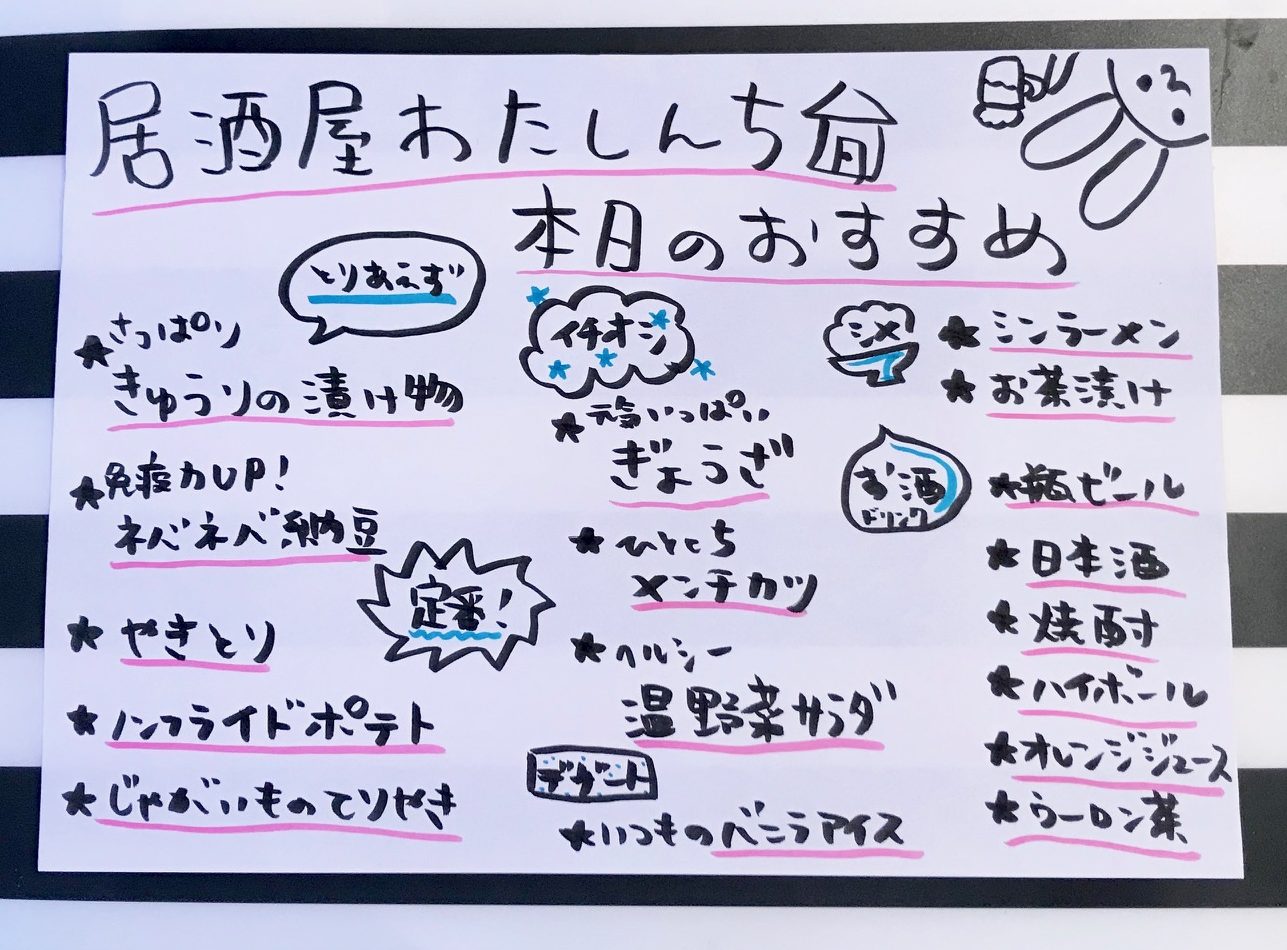 居酒屋わたしんち
本日のおすすめ
とりあえず
★さっぱり
きゅうりの漬け物
★免疫力UP!
ネバネバ納豆
定番!
★やきとり
★ノンフライドポテト
★じゃがいものてりやき
イチオシ
★元気いっぱい
ぎょうざ
★ひとくち
メンチカツ
★ヘルシー
温野菜サラダ
デザート
★いつものバニラアイス
シメ
★ミンラーメン
★お茶漬け
お酒
ドリンク
★瓶ビール
★日本酒
★焼酎
★ハイボール
★オレンジジュース
★ウーロン茶